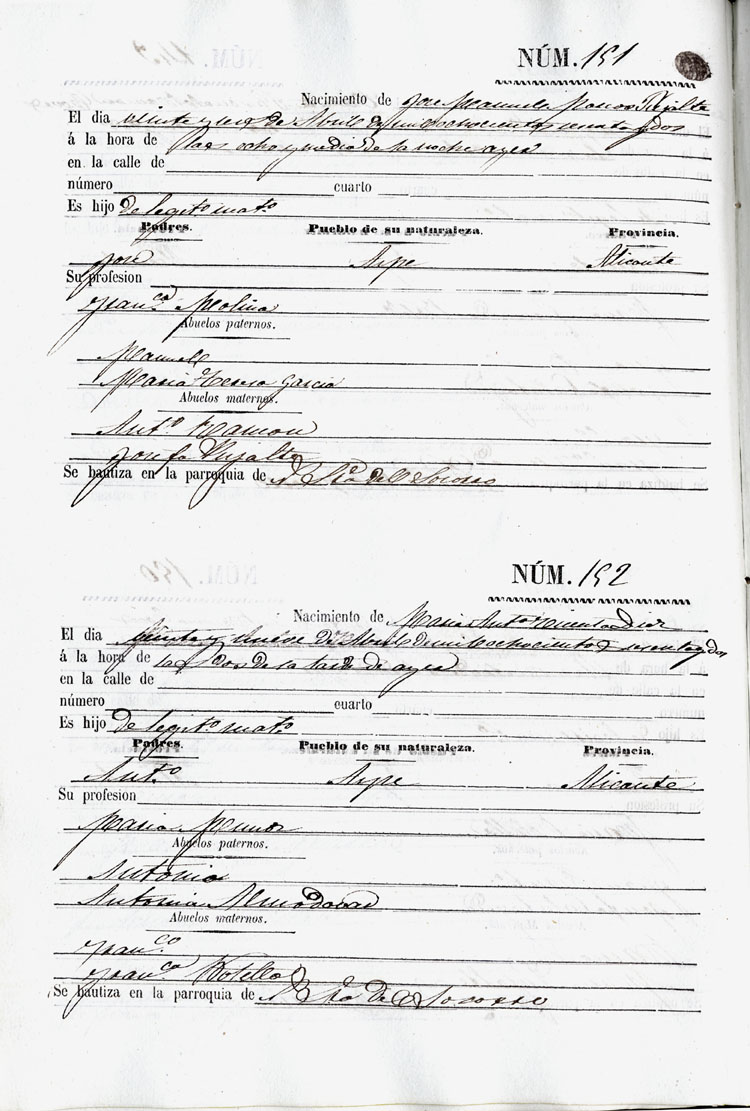 NÚM. 151
Nacimiento de José Manuel
El dia veinte y de Abril de mil ochocientos sesenta y dos
á la hora de las ocho y media de la noche ayer
en la calle de
número cuarto
Es hijo de legit.º mat.º
Padres. Pueblo de su naturaleza. Provincia.
José Aspe Alicante
Su profesion
Fran.ca Molina
Abuelos paternos.
Manuel
Maria Teresa Garcia
Abuelos maternos.
Ant.º Ramon
Josefa
Se bautiza en la parroquia de N. Sra. del Socorro
NÚM. 152
Nacimiento de Maria Ant.ª
El dia y nueve de Abril de mil ochocientos sesenta y dos
á la hora de las dos de la tarde de ayer
en la calle de
número cuarto
Es hijo de legit.º mat.º
Padres. Pueblo de su naturaleza. Provincia.
Ant.º Aspe Alicante
Su profesion
Maria Muñoz
Abuelos paternos.
Antonio
Antonia Almodovar
Abuelos maternos.
Fran.co
Fran.ca Botella
Se bautiza en la parroquia de N. Sra. del Socorro